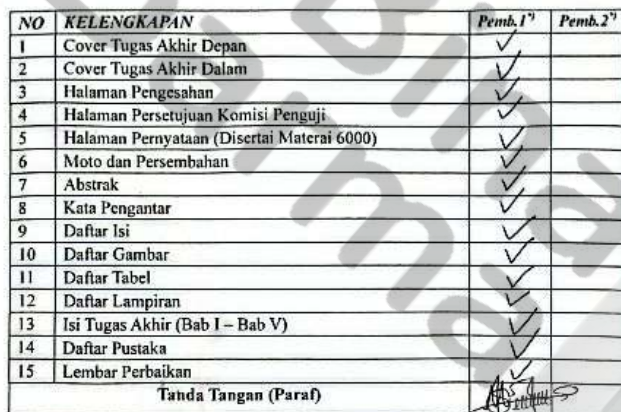 NO KELENGKAPAN Pemb.1*) Pemb.2*)
1 Cover Tugas Akhir Depan ✓
2 Cover Tugas Akhir Dalam ✓
3 Halaman Pengesahan ✓
4 Halaman Persetujuan Komisi Penguji ✓
5 Halaman Pernyataan (Disertai Materai 6000) ✓
6 Moto dan Persembahan ✓
7 Abstrak ✓
8 Kata Pengantar ✓
9 Daftar Isi ✓
10 Daftar Gambar ✓
11 Daftar Tabel ✓
12 Daftar Lampiran ✓
13 Isi Tugas Akhir (Bab I – Bab V) ✓
14 Daftar Pustaka ✓
15 Lembar Perbaikan ✓
Tanda Tangan (Paraf)